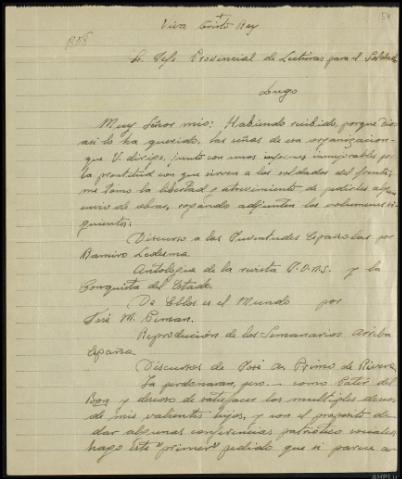 158
Viva Cristo Rey
Sr. Jefe Provincial de Lecturas para el Soldado
Lugo
Muy Señor mio: Habiendo recibido, porque Dios
asi lo ha querido, las señas de esa organizacion
que V. dirige, junto con unos informes inmejorables por
la prontitud con que sirven a los soldados del frente,
me tomo la libertad y atrevimiento de pedirles algun
envio de obras, rogando adjunten los volumenes si-
guientes:
Discurso a las Juventudes Españolas por
Ramiro Ledesma
Antologia de la revista J.O.N.S. y la
Conquista del Estado
De Ellos es el Mundo por
José M. Peman.
Reproducion de los Semanarios Arriba
España
Discursos de José A. Primo de Rivera
La perdonaran, pero... como Pater del
Bon y deseoso de satisfacer los multiples deseos
de mis valientes hijos, y con el proposito de
dar algunas conferencias patriotico sociales
hago este "primer" pedido que si parece
AHPLu